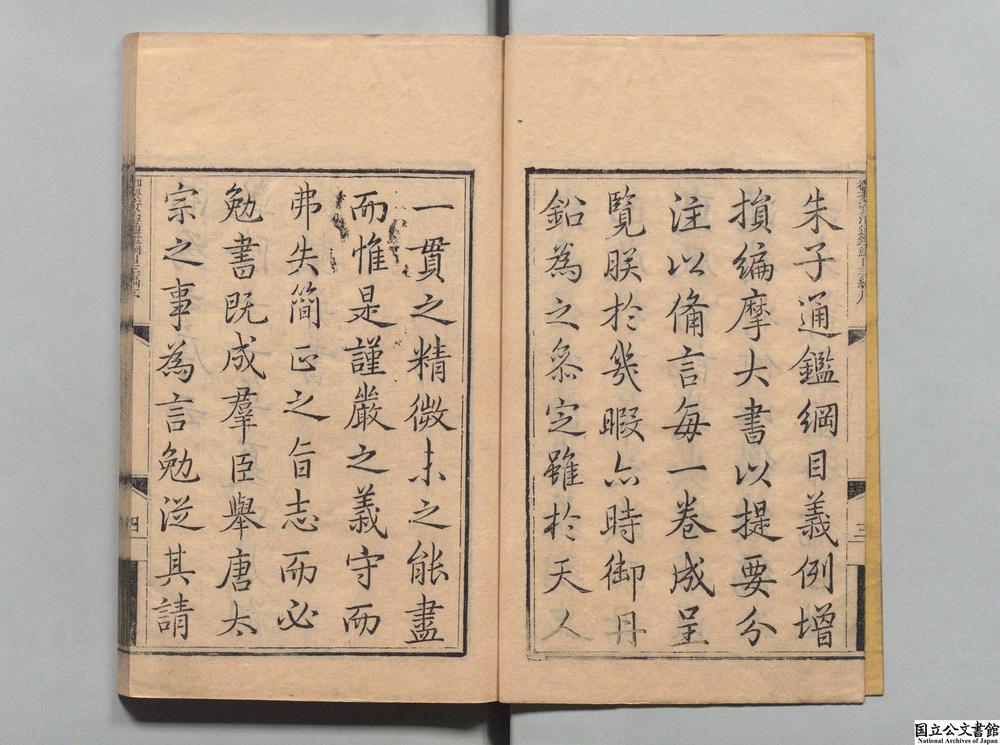 朱子通鑑綱目義例增
損編摩大書以提要分
注以備言每一卷成呈
覽朕於幾暇亦時御丹
鉛為之叅定雖於天人
一貫之精微未之能盡
而惟是謹嚴之義守而
弗失簡正之旨志而必
勉書既成羣臣舉唐太
宗之事為言勉從其請
三
四
国立公文書館
National Archives of Japan